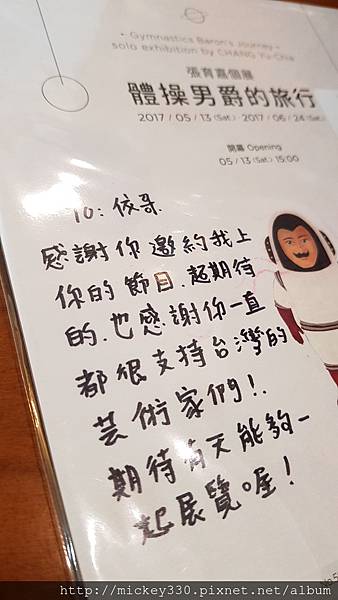 - Gymnastics Baron's Journey -
solo exhibition by CHANG Yu-Chia
張育嘉個展
體操男爵的旅行
2017 / 05 / 13 (Sat.) - 2017 / 06 / 24 (Sat.)
開幕 Opening
05 / 13 (Sat.) 15:00
TO: 依哥
感謝你邀約我上
你的節目.超期待
的.也感謝你一直
都很支持台灣的
芸術家們!.
期待有天能夠一
起展覽喔!
http://mickey330.pixnet.net/album